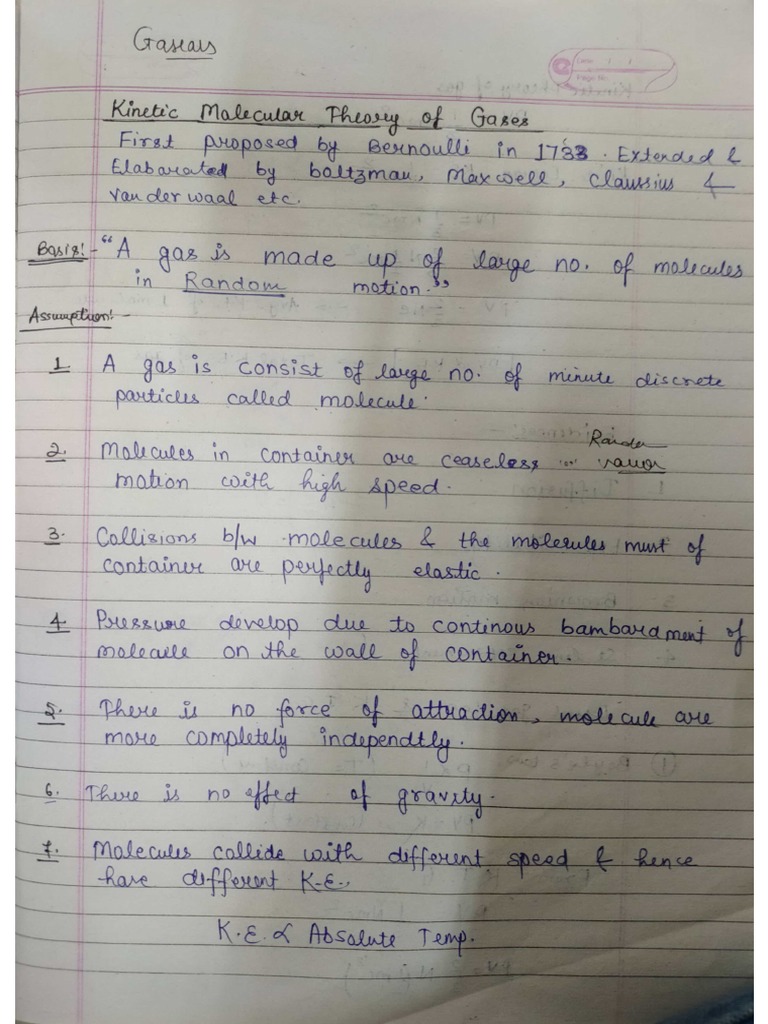 Gaseous
Date: / /
Page No.
Kinetic Molecular Theory of Gases
First proposed by Bernoulli in 1738. Extended &
Elabarated by boltzman, Maxwell, Claussius &
van der waal etc.
Basis:- "A gas is made up of large no. of molecules
in Random motion."
Assumption:-
1. A gas is consist of large no. of minute discrete
particles called molecule.
Random
2. Molecules in container are ceaseless
motion with high speed.
3. Collisions b/w molecules & the molecules must of
container are perfectly elastic.
4. Pressure develop due to continous bambardment of
molecule on the wall of container.
5. There is no force of attraction, molecule are
more completely independtly.
6. There is no effect of gravity.
7. Molecules collide with different speed & hence
have different K.E.,
K.E. α Absolute Temp.